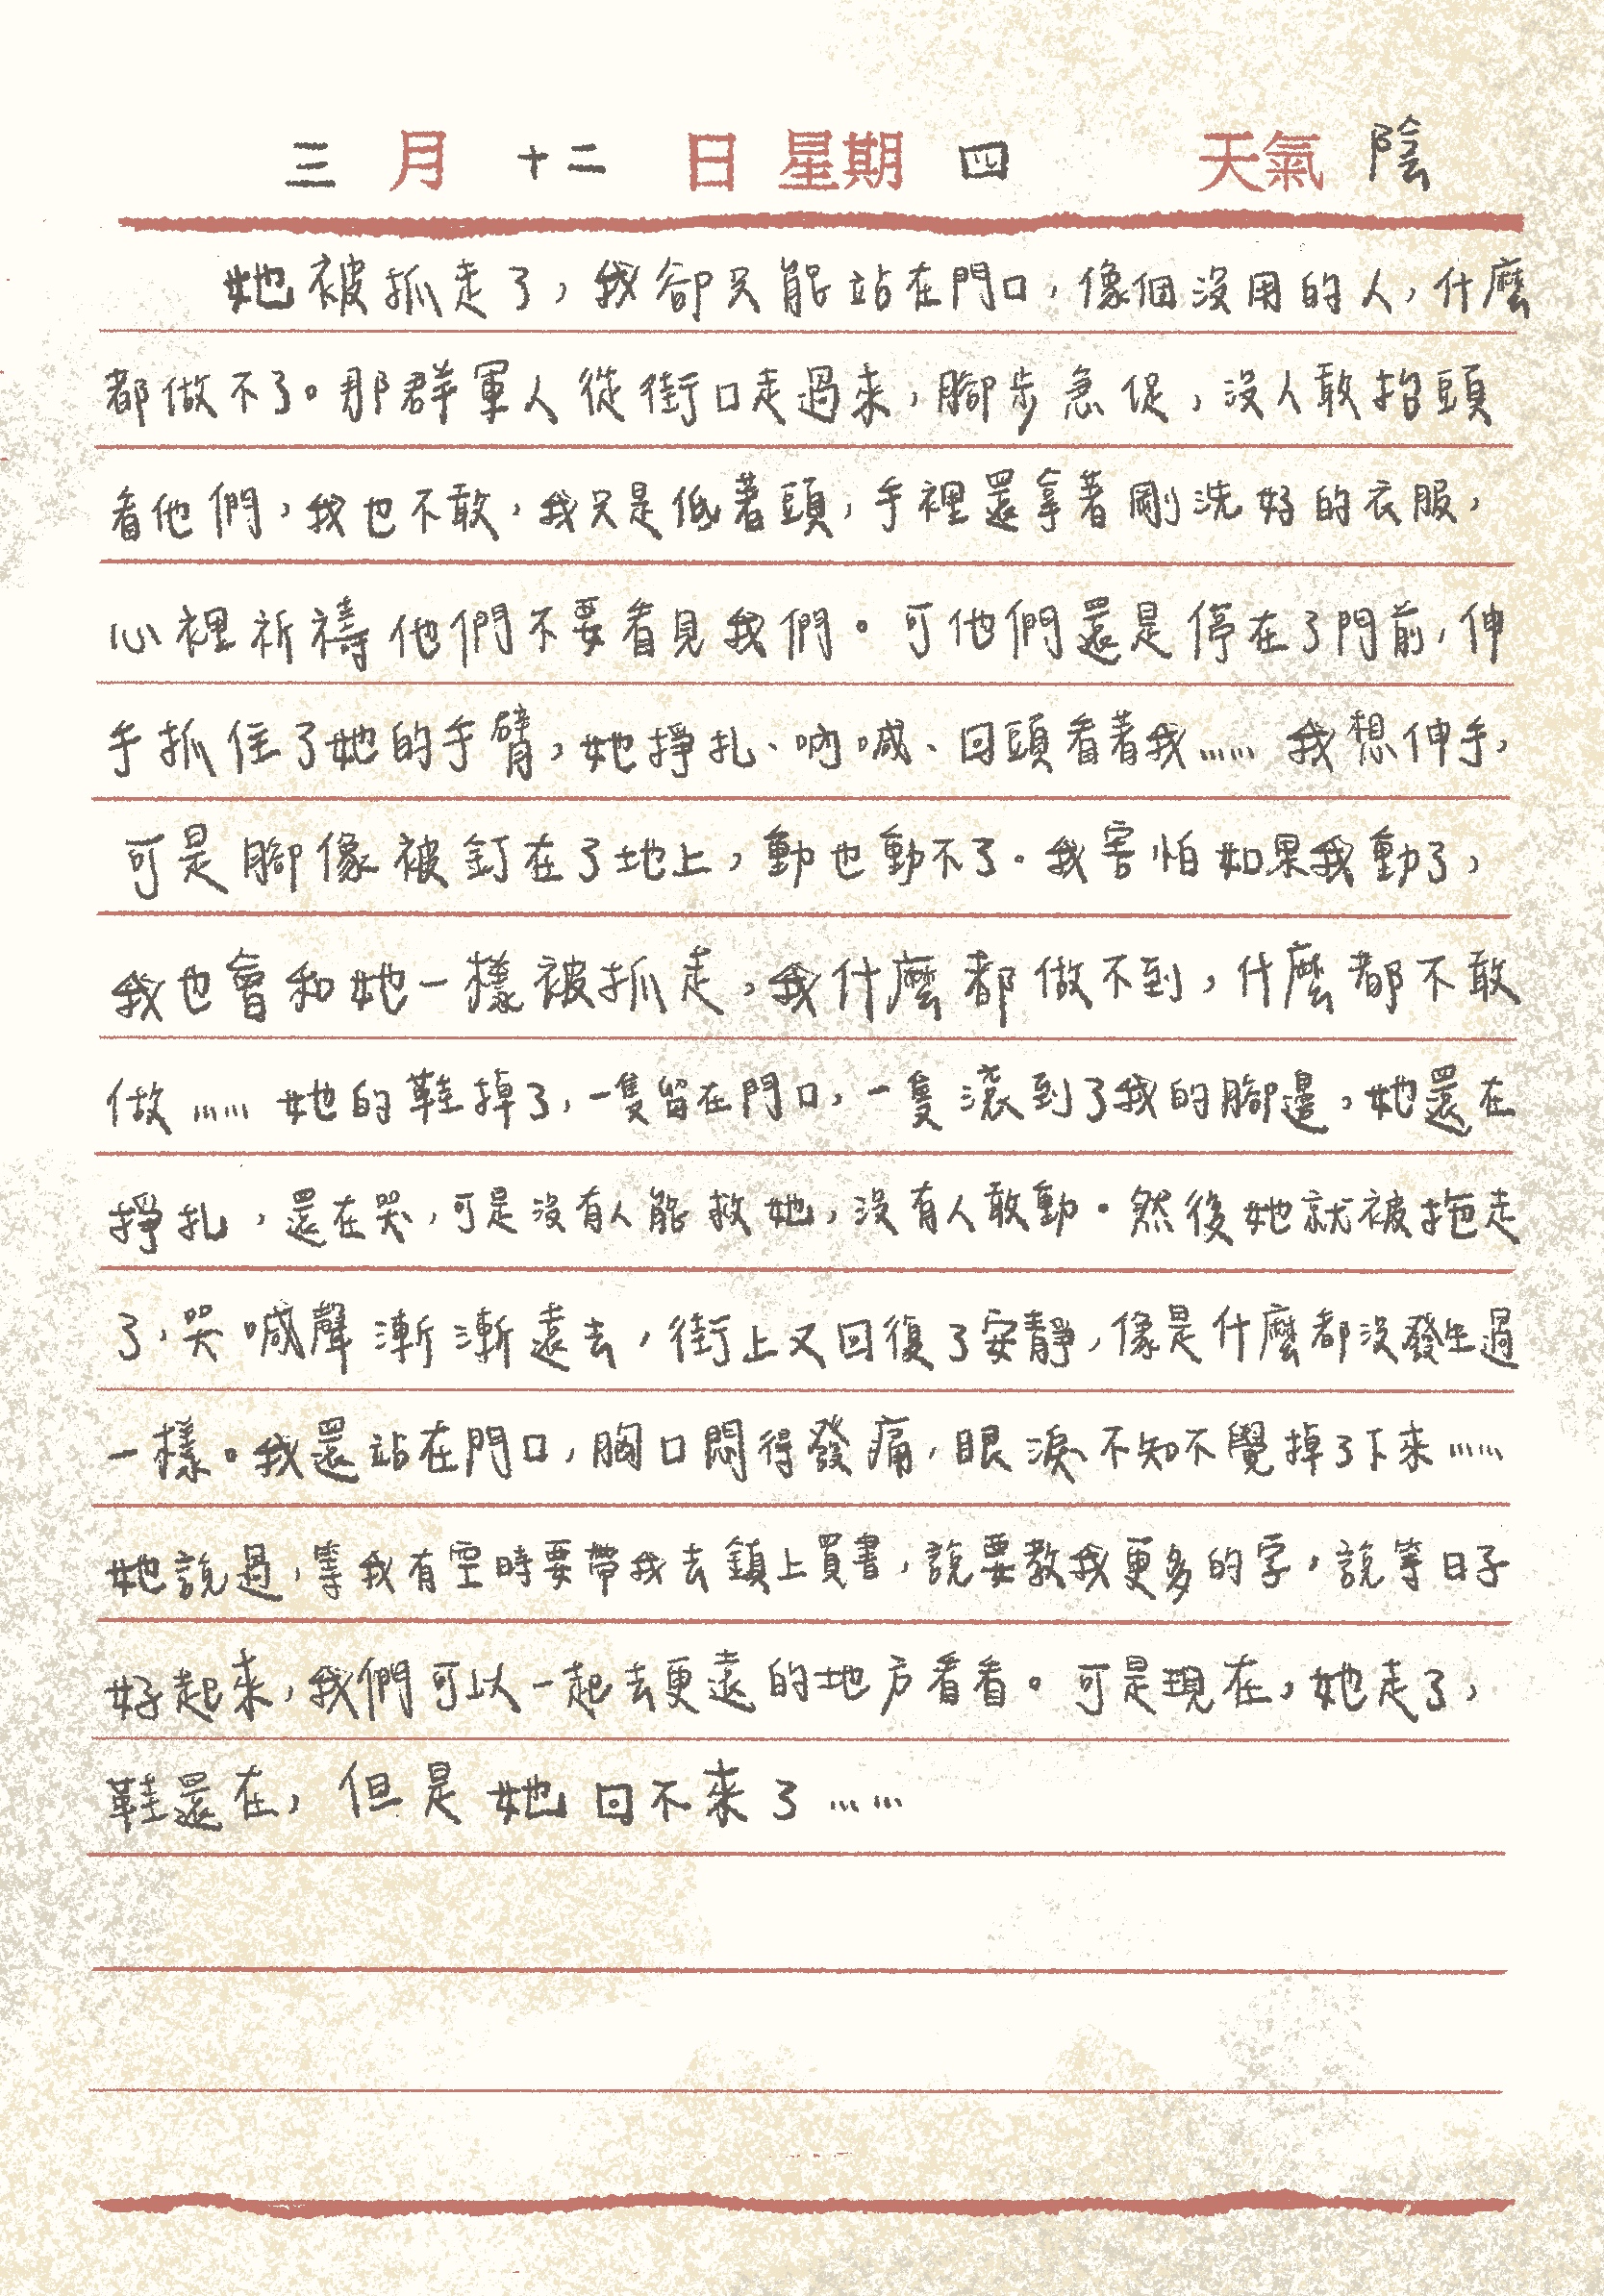 三月十二日星期四 天氣陰
她被抓走了，我卻只能站在門口，像個沒用的人，什麼
都做不了。那群軍人從街口走過來，腳步急促，沒人敢抬頭
看他們，我也不敢，我只是低著頭，手裡還拿著剛洗好的衣服，
心裡祈禱他們不要看見我們。可他們還是停在了門前，伸
手抓住了她的手臂，她掙扎、吶喊、回頭看著我……我想伸手，
可是腳像被釘在了地上，動也動不了。我害怕如果我動了，
我也會和她一樣被抓走，我什麼都做不到，什麼都不敢
做……她的鞋掉了，一隻留在門口，一隻滾到了我的腳邊，她還在
掙扎，還在哭，可是沒有人能救她，沒有人敢動。然後她就被拖走
了，哭喊聲漸漸遠去，街上又回復了安靜，像是什麼都沒發生過
一樣。我還站在門口，胸口悶得發痛，眼淚不知不覺掉了下來……
她說過，等我有空時要帶我去鎮上買書，說要教我更多的字，說等日子
好起來，我們可以一起去更遠的地方看看。可是現在，她走了，
鞋還在，但是她回不來了……